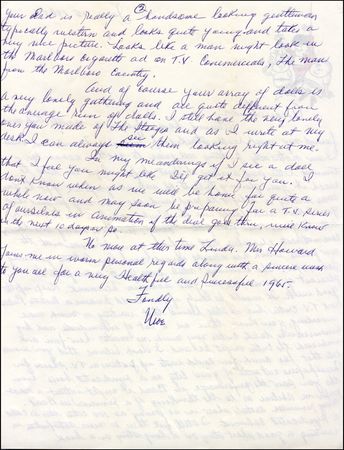 ②
Your Dad is really a handsome looking gentleman
typically western and looks quite young and takes a
very nice picture. Looks like a man might look in
the Marlboro Cigarette ad on T.V. Commercials. The man
from the Marlboro Country.
And of course your array of dolls is
a very lovely gathering and are quite different from
the average run of dolls. I still have the very lovely
ones you made of the Stooges and as I write at my
desk I can always see them looking right at me.
In my meanderings if I see a doll
that I feel you might like I'll get it for you. I
don't know when as we will be home for quite a
while now and may soon be preparing for a T.V. Series
of ourselves in animation if the deal goes thru, will know
in the next 10 days or so.
No more at this time Linda. Mrs Howard
joins me in warm personal regards along with a sincere wish
to you all for a very Healthful and Successful 1965.
Fondly
Moe